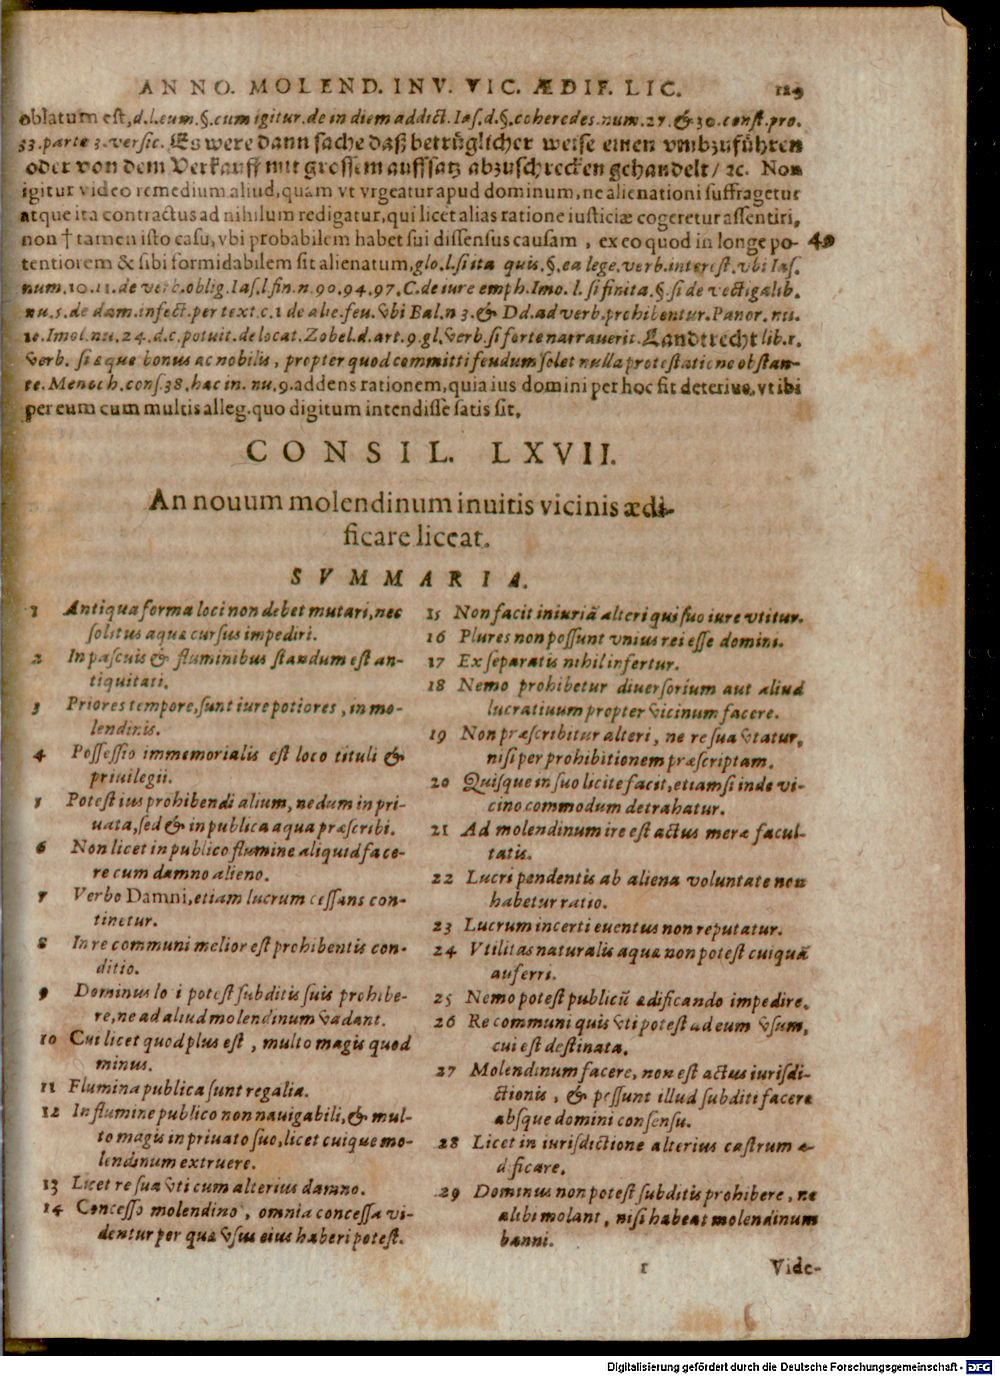 ANNO. MOLEND. INV. VIC. ÆDIF. LIC. 129
oblatum est, d.l.eum.§.cum igitur.de in diem addict. Ias.d.§.coheredes.num.27.& 30.const.pro.
33.parte 3.versic. Es were dann sache daß betrüglicher weise einen vmbzuführen
oder von dem Verkauff mit grossem auffsatz abzuschrecken gehandelt/ ꝛc. Non
igitur video remedium aliud, quam vt vrgeatur apud dominum, ne alienationi suffragetur
atque ita contractus ad nihilum redigatur, qui licet alias ratione iusticiæ cogeretur assentiri,
non † tamen isto casu, vbi probabilem habet sui dissensus causam , ex eo quod in longe po- 40
tentiorem & sibi formidabilem sit alienatum, glo.l.si ita quis.§.ea lege.verb.interest.vbi Ias.
num.10.11.de verb.oblig.Ias.l.fin.n.90.94.97.C.de iure emph.Imo.l.si finita.§.si de vectigalib.
nu.5.de dam.infect.per text.c.1 de alie.feu.vbi Bal.n 3.& Dd.ad verb.prohibentur.Panor.nu.
10.Imol.nu.24.d.c.potuit.de locat.Zobel.d.art.9.gl.verb.si forte narrauerit. Landtrecht lib.1.
verb. si æque bonus ac nobilis , propter quod committi feudum solet nulla protestatione obstan-
te.Menoch.cons.38.hac in.nu.9.addens rationem, quia ius domini per hoc fit deterius, vt ibi
per eum cum multis alleg.quo digitum intendisse satis sit.
CONSIL. LXVII.
An nouum molendinum inuitis vicinis ædi-
ficare liceat.
SVMMARIA.
1 Antiqua forma loci non debet mutari, nec
solitus aquæ cursus impediri.
2 In pascuis & fluminibus standum est an-
tiquitati.
3 Priores tempore, sunt iure potiores , in mo-
lendinis.
4 Possessio immemorialis est loco tituli &
priuilegii.
5 Potest ius prohibendi alium, nedum in pri-
uata, sed & in publica aqua præscribi.
6 Non licet in publico flumine aliquid face-
re cum damno alieno.
7 Verbo Damni, etiam lucrum cessans con-
tinetur.
8 In re communi melior est prohibentis con-
ditio.
9 Dominus loci potest subditis suis prohibe-
re, ne ad aliud molendinum vadant.
10 Cui licet quod plus est , multo magis quod
minus.
11 Flumina publica sunt regalia.
12 In flumine publico non nauigabili, & mul-
to magis in priuato suo, licet cuique mo-
lendinum extruere.
13 Licet re sua vti cum alterius damno.
14 Concesso molendino , omnia concessa vi-
dentur per quæ vsus eius haberi potest.
15 Non facit iniuriã alteri qui suo iure vtitur.
16 Plures non possunt vnius rei esse domini.
17 Ex separatis nihil infertur.
18 Nemo prohibetur diuersorium aut aliud
lucratiuum propter vicinum facere.
19 Non præscribitur alteri , ne re sua vtatur,
nisi per prohibitionem præscriptam.
20 Quisque in suo licite facit, etiamsi inde vi-
cino commodum detrahatur.
21 Ad molendinum ire est actus meræ facul-
tatis.
22 Lucri pendentis ab aliena voluntate non
habetur ratio.
23 Lucrum incerti euentus non reputatur.
24 Vtilitas naturalis aquæ non potest cuiquã
auferri.
25 Nemo potest publicũ ædificando impedire.
26 Re communi quis vti potest ad eum vsum,
cui est destinata.
27 Molendinum facere, non est actus iurisdi-
ctionis , & possunt illud subditi facere
absque domini consensu.
28 Licet in iurisdictione alterius castrum æ-
dificare.
29 Dominus non potest subditis prohibere , ne
alibi molant , nisi habeat molendinum
banni.
r Vide-
Digitalisierung gefördert durch die Deutsche Forschungsgemeinschaft - DFG